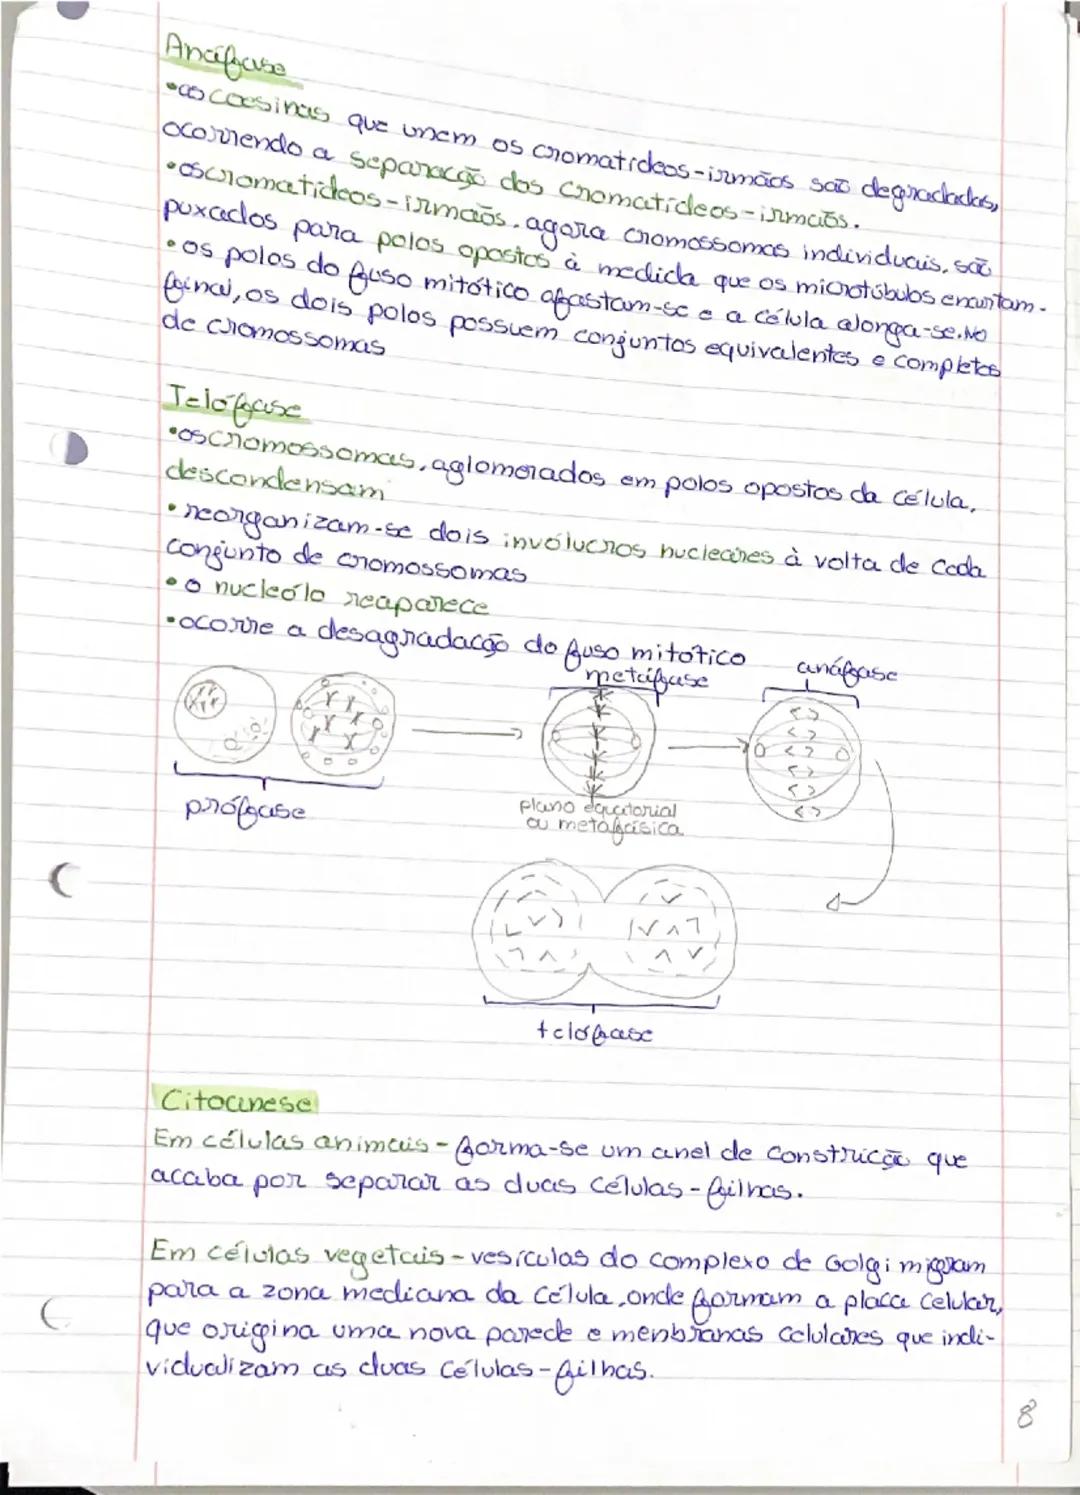 Anáfase
•as coesinas que unem os cromatídeos-irmãos são degradadas,
ocorrendo a separação dos cromatídeos-irmãos.
•os cromatídeos-irmãos, agora cromossomas individuais, são
puxados para polos opostos à medida que os microtúbulos encurtam.
•os polos do fuso mitótico afastam-se e a célula alonga-se. No
final, os dois polos possuem conjuntos equivalentes e completos
de cromossomas
Telófase
•os cromossomas, aglomerados em polos opostos da célula,
descondensam
•reorganizam-se dois invólucros nucleares à volta de cada
conjunto de cromossomas
•o nucleólo reaparece
•ocorre a desagradação do fuso mitótico
metáfase
anáfase
prófase
plano equatorial
ou metafásica
telófase
Citocinese
Em células animais - forma-se um anel de constricção que
acaba por separar as duas células-filhas.
Em células vegetais - vesículas do complexo de Golgi migram
para a zona mediana da célula, onde formam a placa celular,
que origina uma nova parede e menbranas celulares que indi-
vidualizam as duas células-filhas.
8